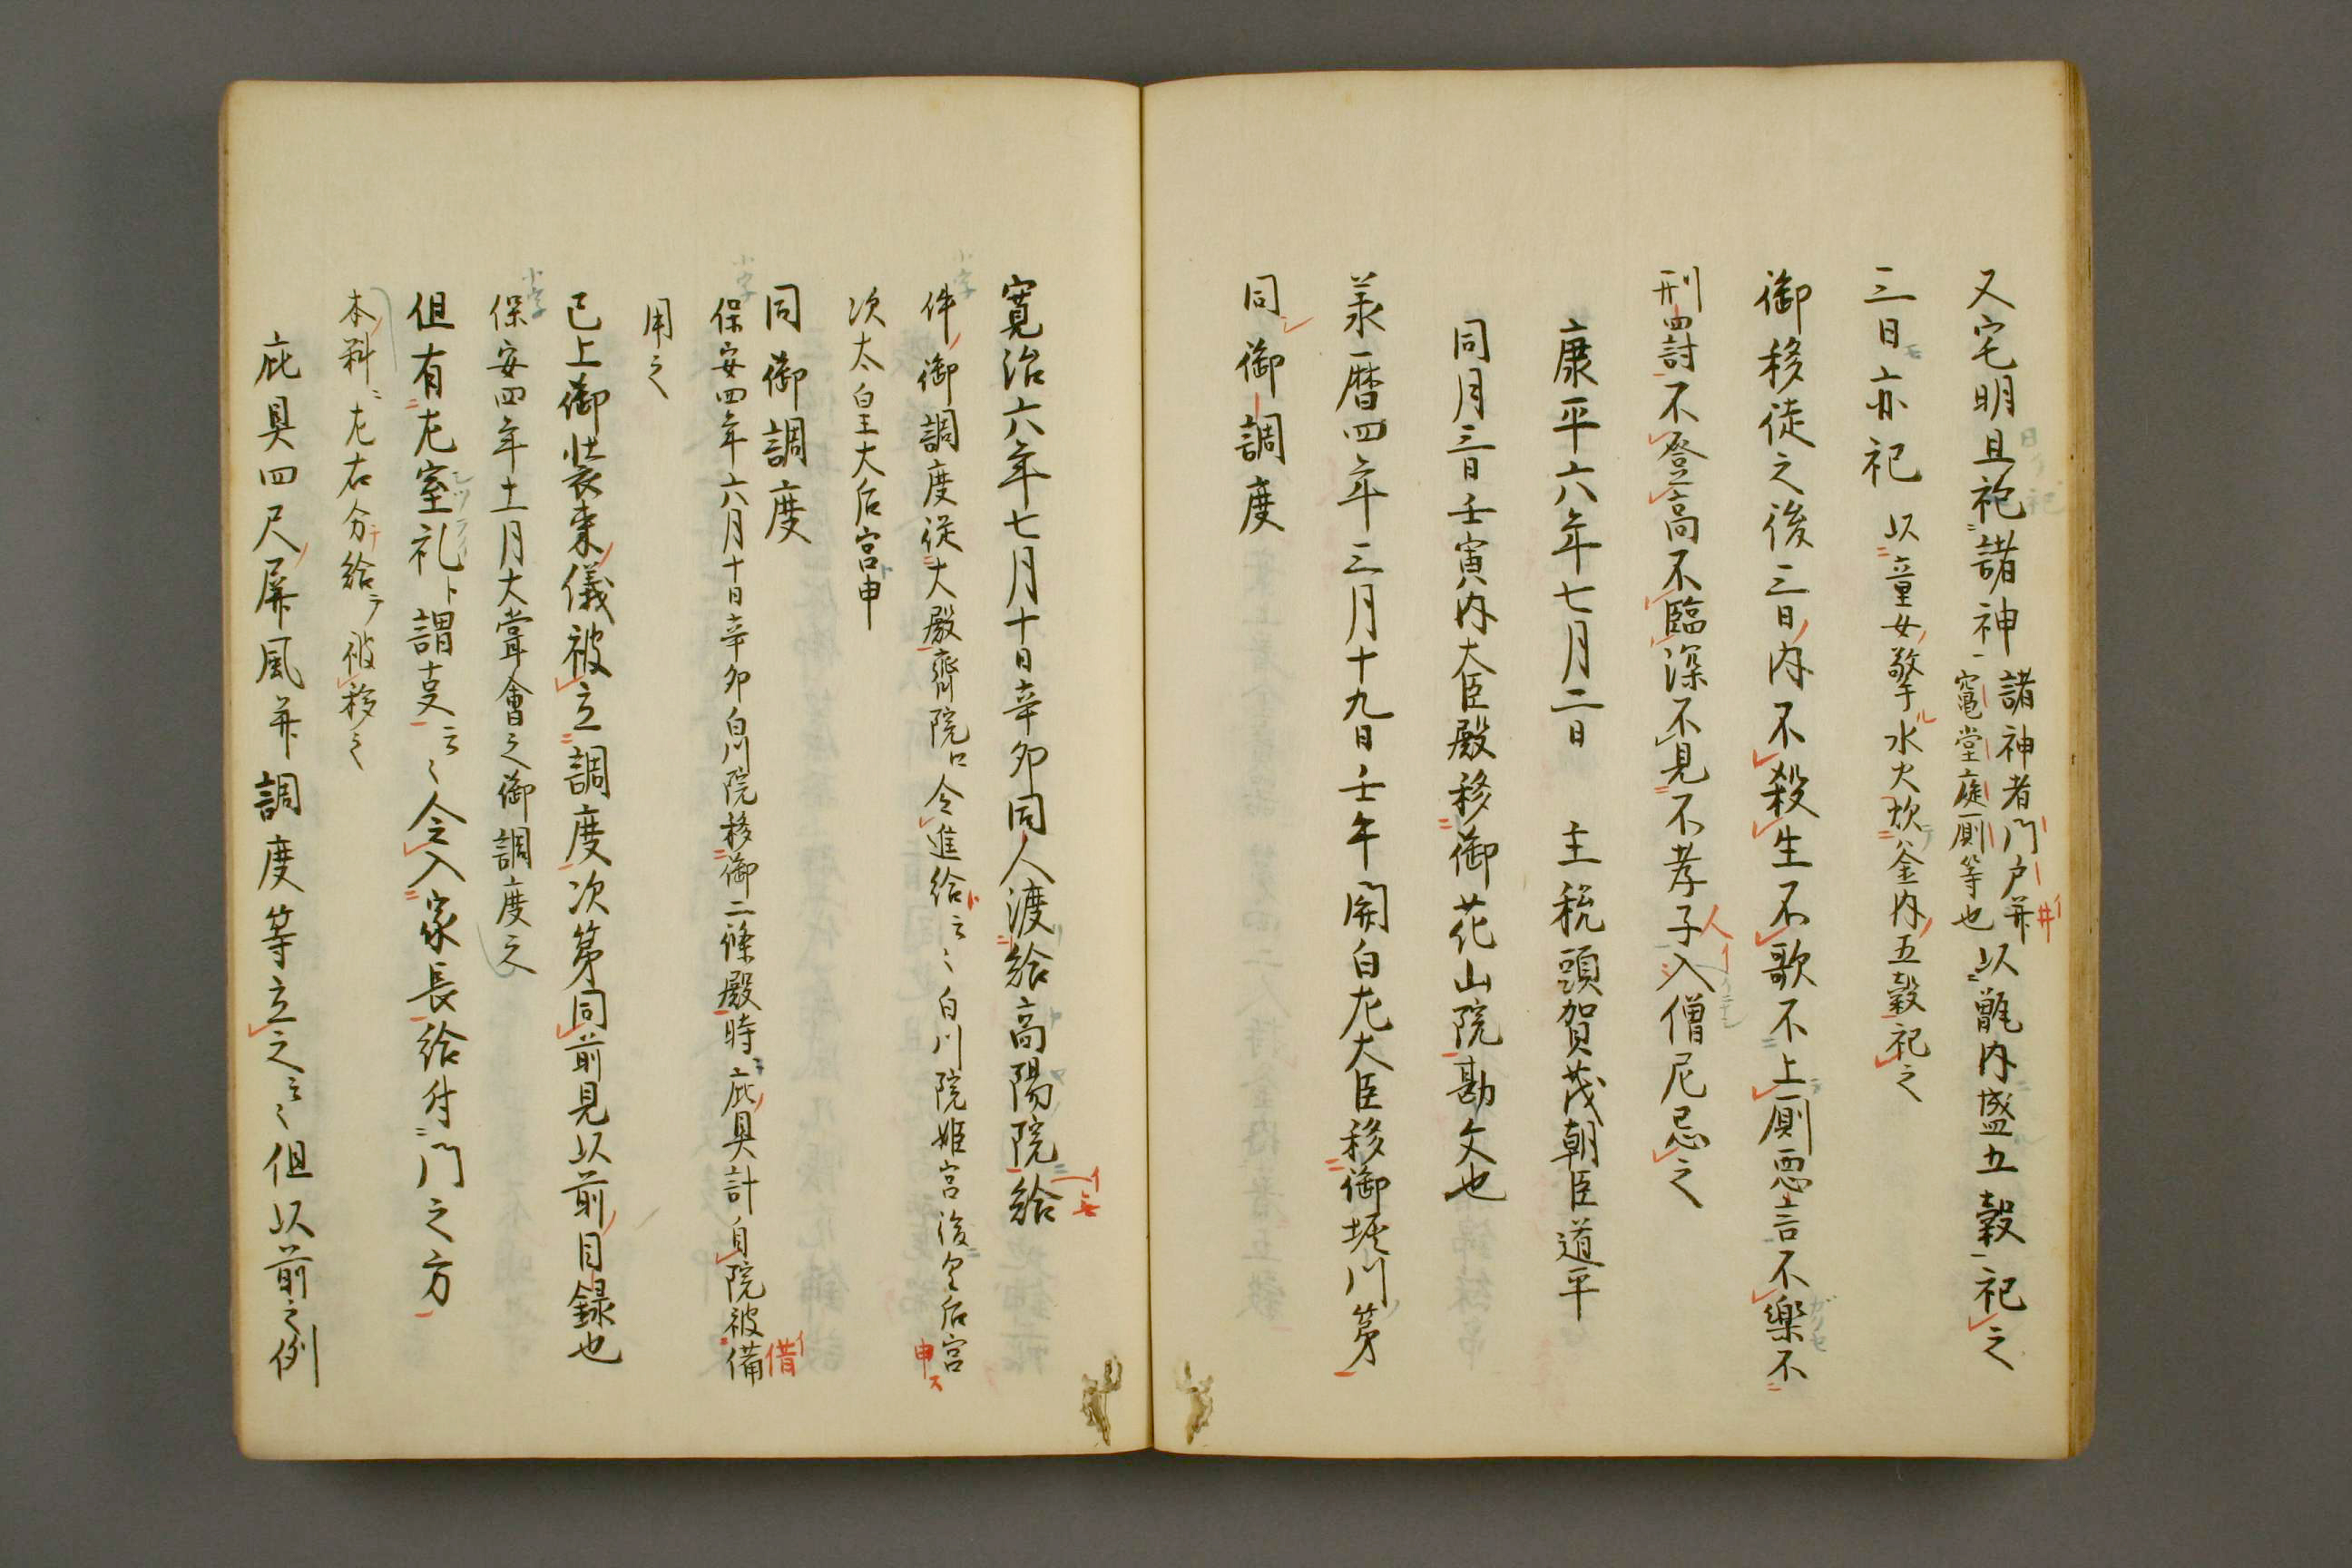 又宅明且祀諸神 諸神者門戸井竈堂庭厠等也 以甑内盛五穀祀之
三日亦祀 以童女擎水火炊釜内五穀祀之
御移徒之後三日内不殺生不歌不上厠悪言不樂不
刑罸不登高不臨深不見不孝子入僧尼忌之
康平六年七月二日 主税頭賀茂朝臣道平
同月三日壬寅内大臣殿移御花山院勘文也
承暦四年三月十九日壬午関白左大臣移御堀川第
同御調度
寛治六年七月十日辛卯同人渡給高陽院給
件御調度従大殿齊院口令進給云々白川院姫宮後皇后宮申
次太皇太后宮申
同御調度
保安四年六月十日辛卯白川院移御二條殿時庇具計自院被備
用之
已上御装束儀被立調度次第同前見以前目録也
保安四年十一月大甞會之御調度之
但有左室礼ト謂支云々令入家長給付門之方
本料ニ左右分給テ被移之
庇具四尺屏風并調度等立之云々但以前之例